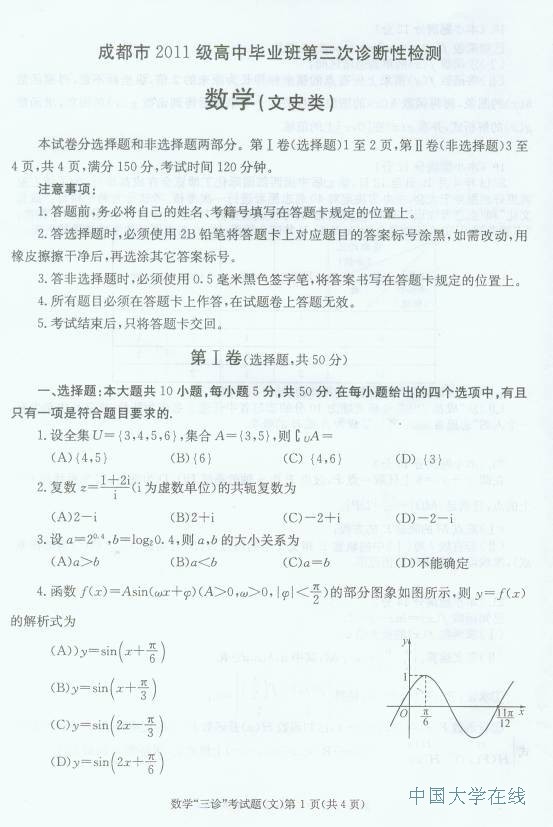 成都市 2011 级高中毕业班第三次诊断性检测
数学(文史类)
本试卷分选择题和非选择题两部分。第Ⅰ卷(选择题)1 至 2 页,第Ⅱ卷(非选择题)3 至
4 页,共 4 页,满分 150 分,考试时间 120 分钟。
注意事项:
1.答题前,务必将自己的姓名、考籍号填写在答题卡规定的位置上。
2.答选择题时,必须使用 2B 铅笔将答题卡上对应题目的答案标号涂黑,如需改动,用
橡皮擦擦干净后,再选涂其它答案标号。
3.答非选择题时,必须使用 0.5 毫米黑色签字笔,将答案书写在答题卡规定的位置上。
4.所有题目必须在答题卡上作答,在试题卷上答题无效。
5.考试结束后,只将答题卡交回。
第Ⅰ卷(选择题,共 50 分)
一、选择题:本大题共 10 小题,每小题 5 分,共 50 分.在每小题给出的四个选项中,有且
只有一项是符合题目要求的.
1.设全集 U={3,4,5,6},集合 A={3,5},则∁UA=
(A){4,5} (B){6} (C){4,6} (D){3}
2.复数 z=(1+2i)/i(i 为虚数单位)的共轭复数为
(A)2-i (B)2+i (C)-2+i (D)-2-i
3.设 a=2^0.4,b=log₂0.4,则 a,b 的大小关系为
(A)a>b (B)a<b (C)a=b (D)不能确定
4.函数 f(x)=Asin(ωx+φ)(A>0,ω>0,|φ|<π/2)的部分图象如图所示,则 y=f(x)
的解析式为
(A))y=sin(x+π/6)
(B)y=sin(x+π/3)
(C)y=sin(2x-π/3)
(D)y=sin(2x+π/6)
y
1
O π/6 11π/12 x
数学"三诊"考试题(文)第 1 页(共 4 页)
中国大学在线